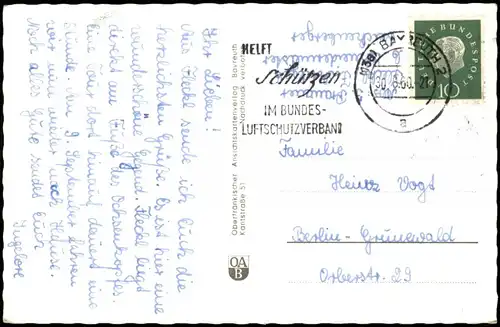 Ihr Lieben!
Aus Fichtel sende ich Euch die
herzlichsten Grüße. Es ist hier eine
wunderschöne Gegend. Fichtel liegt
direkt am Fuße des Ochsenkopfes.
Eine Tour dort hinauf dauert eine
Stunde. Am 9. September fahren
wir nun wieder nach Hause.
Noch alles Gute sendet Euch
Ingelore
Oberfränkischer Ansichtskartenverlag Bayreuth
Kantstraße 51 Nachdruck verboten
OA
B
HELFT
Schützen
IM BUNDES-
LUFTSCHUTZVERBAND
(13a) BAYREUTH 2
30.8.60.-21
a
DEUTSCHE BUNDESPOST
10
Familie
Heinz Vogt
Berlin-Grunewald
Orberstr. 29